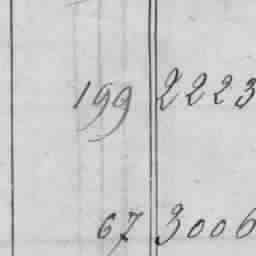 199 2223
67 3006